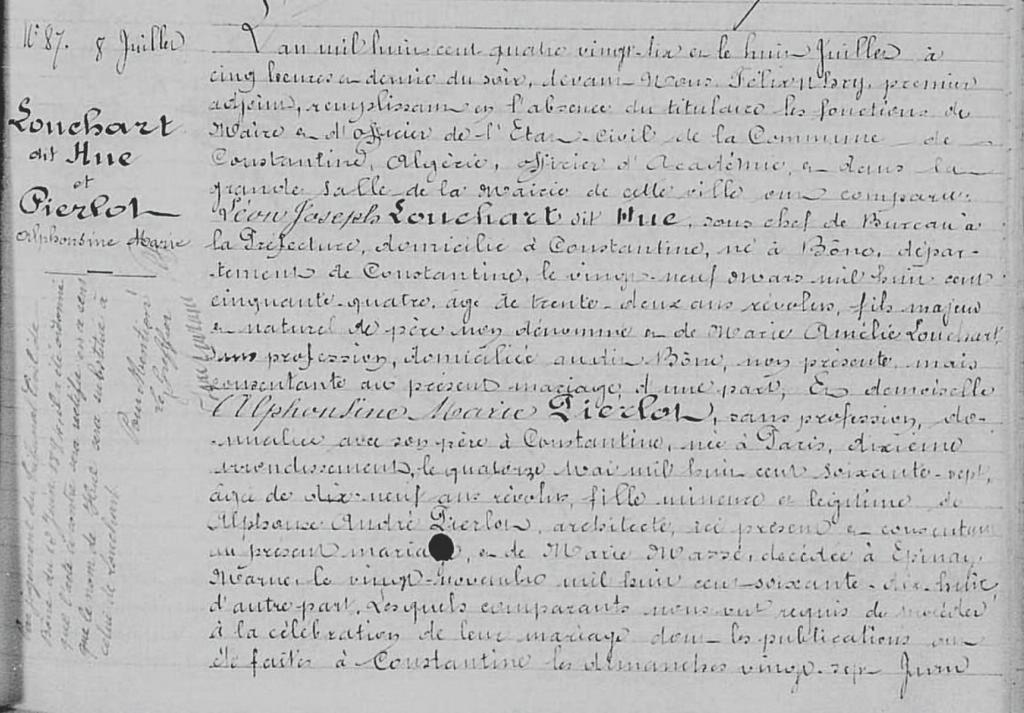 N° 87. 8 Juillet
Louchart
dit Hue
et
Pierlot
Alphonsine Marie
L'an mil huit cent quatre vingt-six et le huit Juillet à
cinq heures et demie du soir, devant Nous, Félix premier
adjoint, remplissant en l'absence du titulaire les fonctions de
Maire et d'officier de l'Etat-civil de la Commune de
Constantine, Algérie, officier d'Académie, et dans la
grande salle de la Mairie de cette ville ont comparu:
Léon Joseph Louchart dit Hue, sous chef de Bureau à
la Préfecture, domicilié à Constantine, né à Bône, dépar-
-tement de Constantine, le vingt-neuf Mars mil huit cent
cinquante-quatre, âgé de trente-deux ans révolus, fils majeur
et naturel de père non dénommé et de Marie Amélie Louchart
sans profession, domiciliée audit Bône, non présente mais
consentante au présent mariage, d'une part, Et demoiselle
Alphonsine Marie Pierlot, sans profession, do-
-miciliée avec son père à Constantine, née à Paris, dixième
arrondissement, le quatorze Mai mil huit cent soixante-sept,
âgée de dix-neuf ans révolus, fille mineure et légitime de
Alphonse André Pierlot, architecte, ici présent et consentant
au présent maria , et de Marie Masse, décédée à Epinay,
Marne, le vingt-Novembre mil huit cent soixante-dix-huit,
d'autre part, Lesquels comparants nous ont requis de procéder
à la célébration de leur mariage dont les publications ont
été faites à Constantine les dimanches vingt-sept Juin
Par jugement du tribunal civil de
Bône du 10 Juin 1891 il a été ordonné
que l'acte ci-contre sera rectifié en ce sens
que le nom de Hue sera substitué à
celui de Louchart.
Pour Mention
Le Greffier